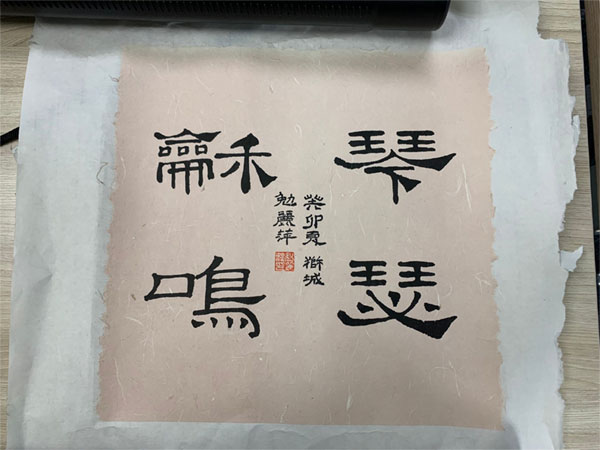 琴瑟
龢鳴
癸卯夏 獅城
勉麗萍